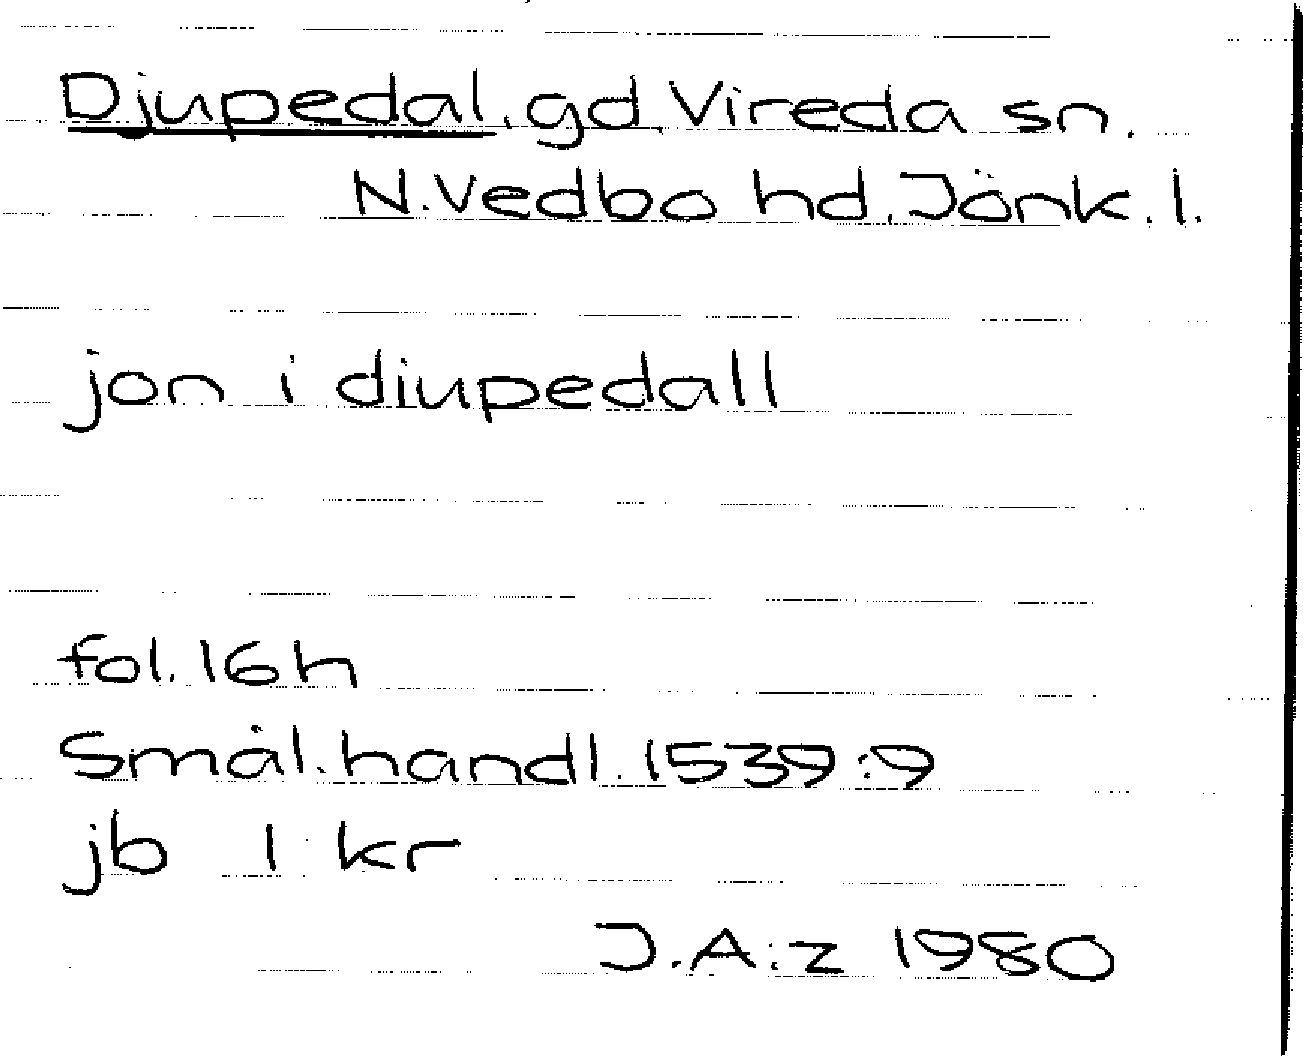 Djupedal, gd, Vireda sn.
N. Vedbo hd, Jönk. l.
jon i diupedall
fol. 16h
Smål. handl. 1539:9
jb 1 kr
J.A:z 1980